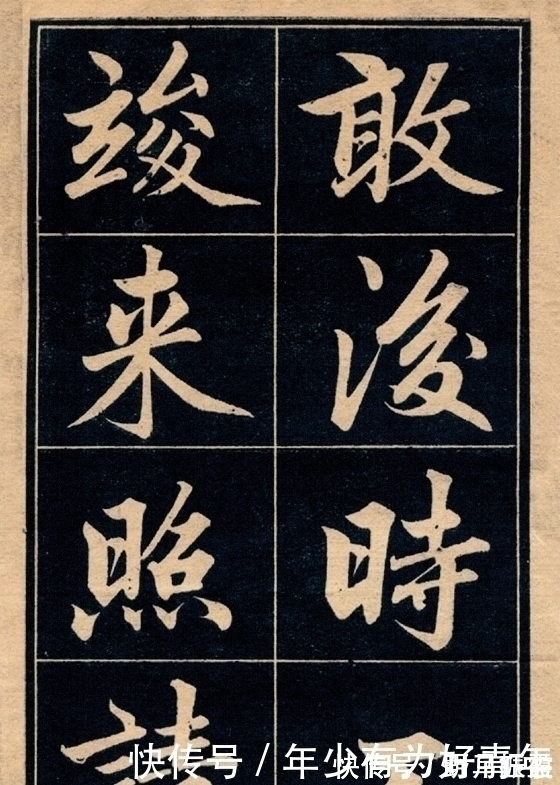 敢後時
竣来照
快传号 / 年少有为好青年
快传号